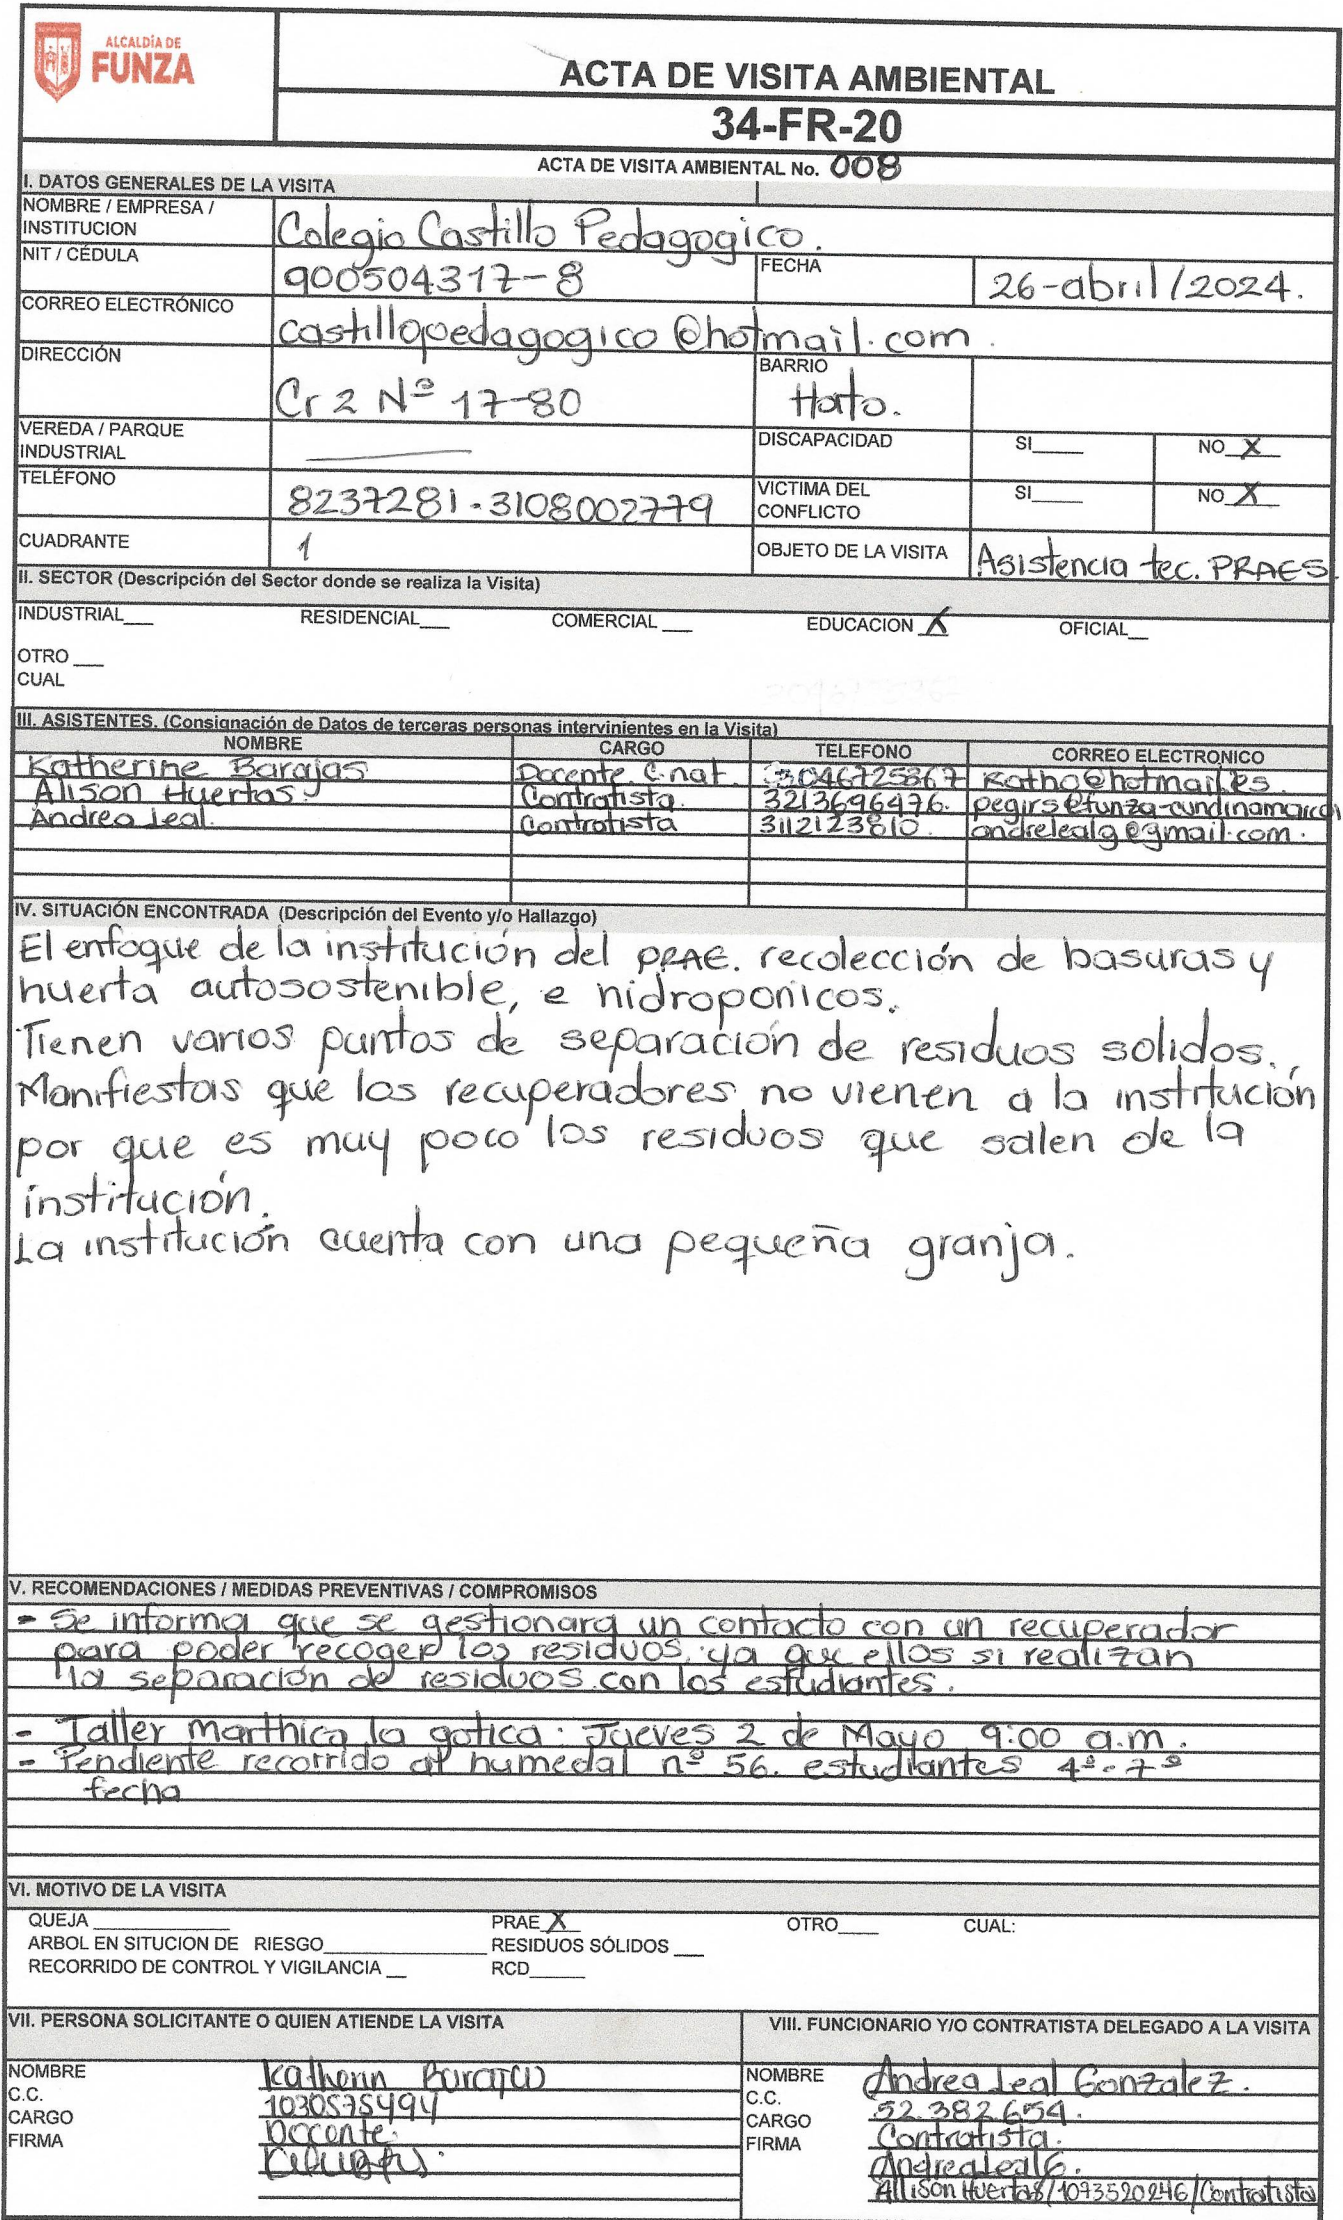 ALCALDÍA DE
FUNZA
ACTA DE VISITA AMBIENTAL
34-FR-20
ACTA DE VISITA AMBIENTAL No. 008
I. DATOS GENERALES DE LA VISITA
NOMBRE / EMPRESA / INSTITUCION Colegio Castillo Pedagogico.
NIT / CÉDULA 900504317-8 FECHA 26-abril/2024.
CORREO ELECTRÓNICO castillopedagogico@hotmail.com.
DIRECCIÓN Cr 2 Nº 17-80 BARRIO Hato.
VEREDA / PARQUE INDUSTRIAL DISCAPACIDAD SI____ NO_X_
TELÉFONO 8237281-3108002779 VICTIMA DEL CONFLICTO SI____ NO_X_
CUADRANTE 1 OBJETO DE LA VISITA Asistencia tec. PRAES.
II. SECTOR (Descripción del Sector donde se realiza la Visita)
INDUSTRIAL___ RESIDENCIAL___ COMERCIAL ___ EDUCACION X OFICIAL__
OTRO ___
CUAL
III. ASISTENTES. (Consignación de Datos de terceras personas intervinientes en la Visita)
NOMBRE CARGO TELEFONO CORREO ELECTRONICO
Katherine Barajas Docente C.nat 3046725867 Katho@hotmail.es
Alison Huertas Contratista 3213696476. pegirs@funza-cundinamarca
Andrea Leal Contratista 3112123810. andrelealg@gmail.com.
IV. SITUACIÓN ENCONTRADA (Descripción del Evento y/o Hallazgo)
El enfoque de la institución del PRAE. recolección de basuras y
huerta autosostenible, e hidroponicos.
Tienen varios puntos de separación de residuos solidos.
Manifiestas que los recuperadores no vienen a la institución
por que es muy poco los residuos que salen de la
institución.
La institución cuenta con una pequeña granja.
V. RECOMENDACIONES / MEDIDAS PREVENTIVAS / COMPROMISOS
- Se informa que se gestionara un contacto con un recuperador
para poder recoger los residuos, ya que ellos si realizan
la separación de residuos con los estudiantes.
- Taller marthica la gotica: Jueves 2 de Mayo 9:00 a.m.
- Pendiente recorrido al humedal nº 56. estudiantes 4º-7º
fecha
VI. MOTIVO DE LA VISITA
QUEJA ____________ PRAE_X_ OTRO____ CUAL:
ARBOL EN SITUCION DE RIESGO______________ RESIDUOS SÓLIDOS ___
RECORRIDO DE CONTROL Y VIGILANCIA __ RCD_____
VII. PERSONA SOLICITANTE O QUIEN ATIENDE LA VISITA
NOMBRE Katherin
C.C. 1030575494
CARGO Docente.
FIRMA
VIII. FUNCIONARIO Y/O CONTRATISTA DELEGADO A LA VISITA
NOMBRE Andrea Leal Gonzalez.
C.C. 52.382.654.
CARGO Contratista.
FIRMA AndreaLealG.
Allison Huertas/1073520246/Contratista